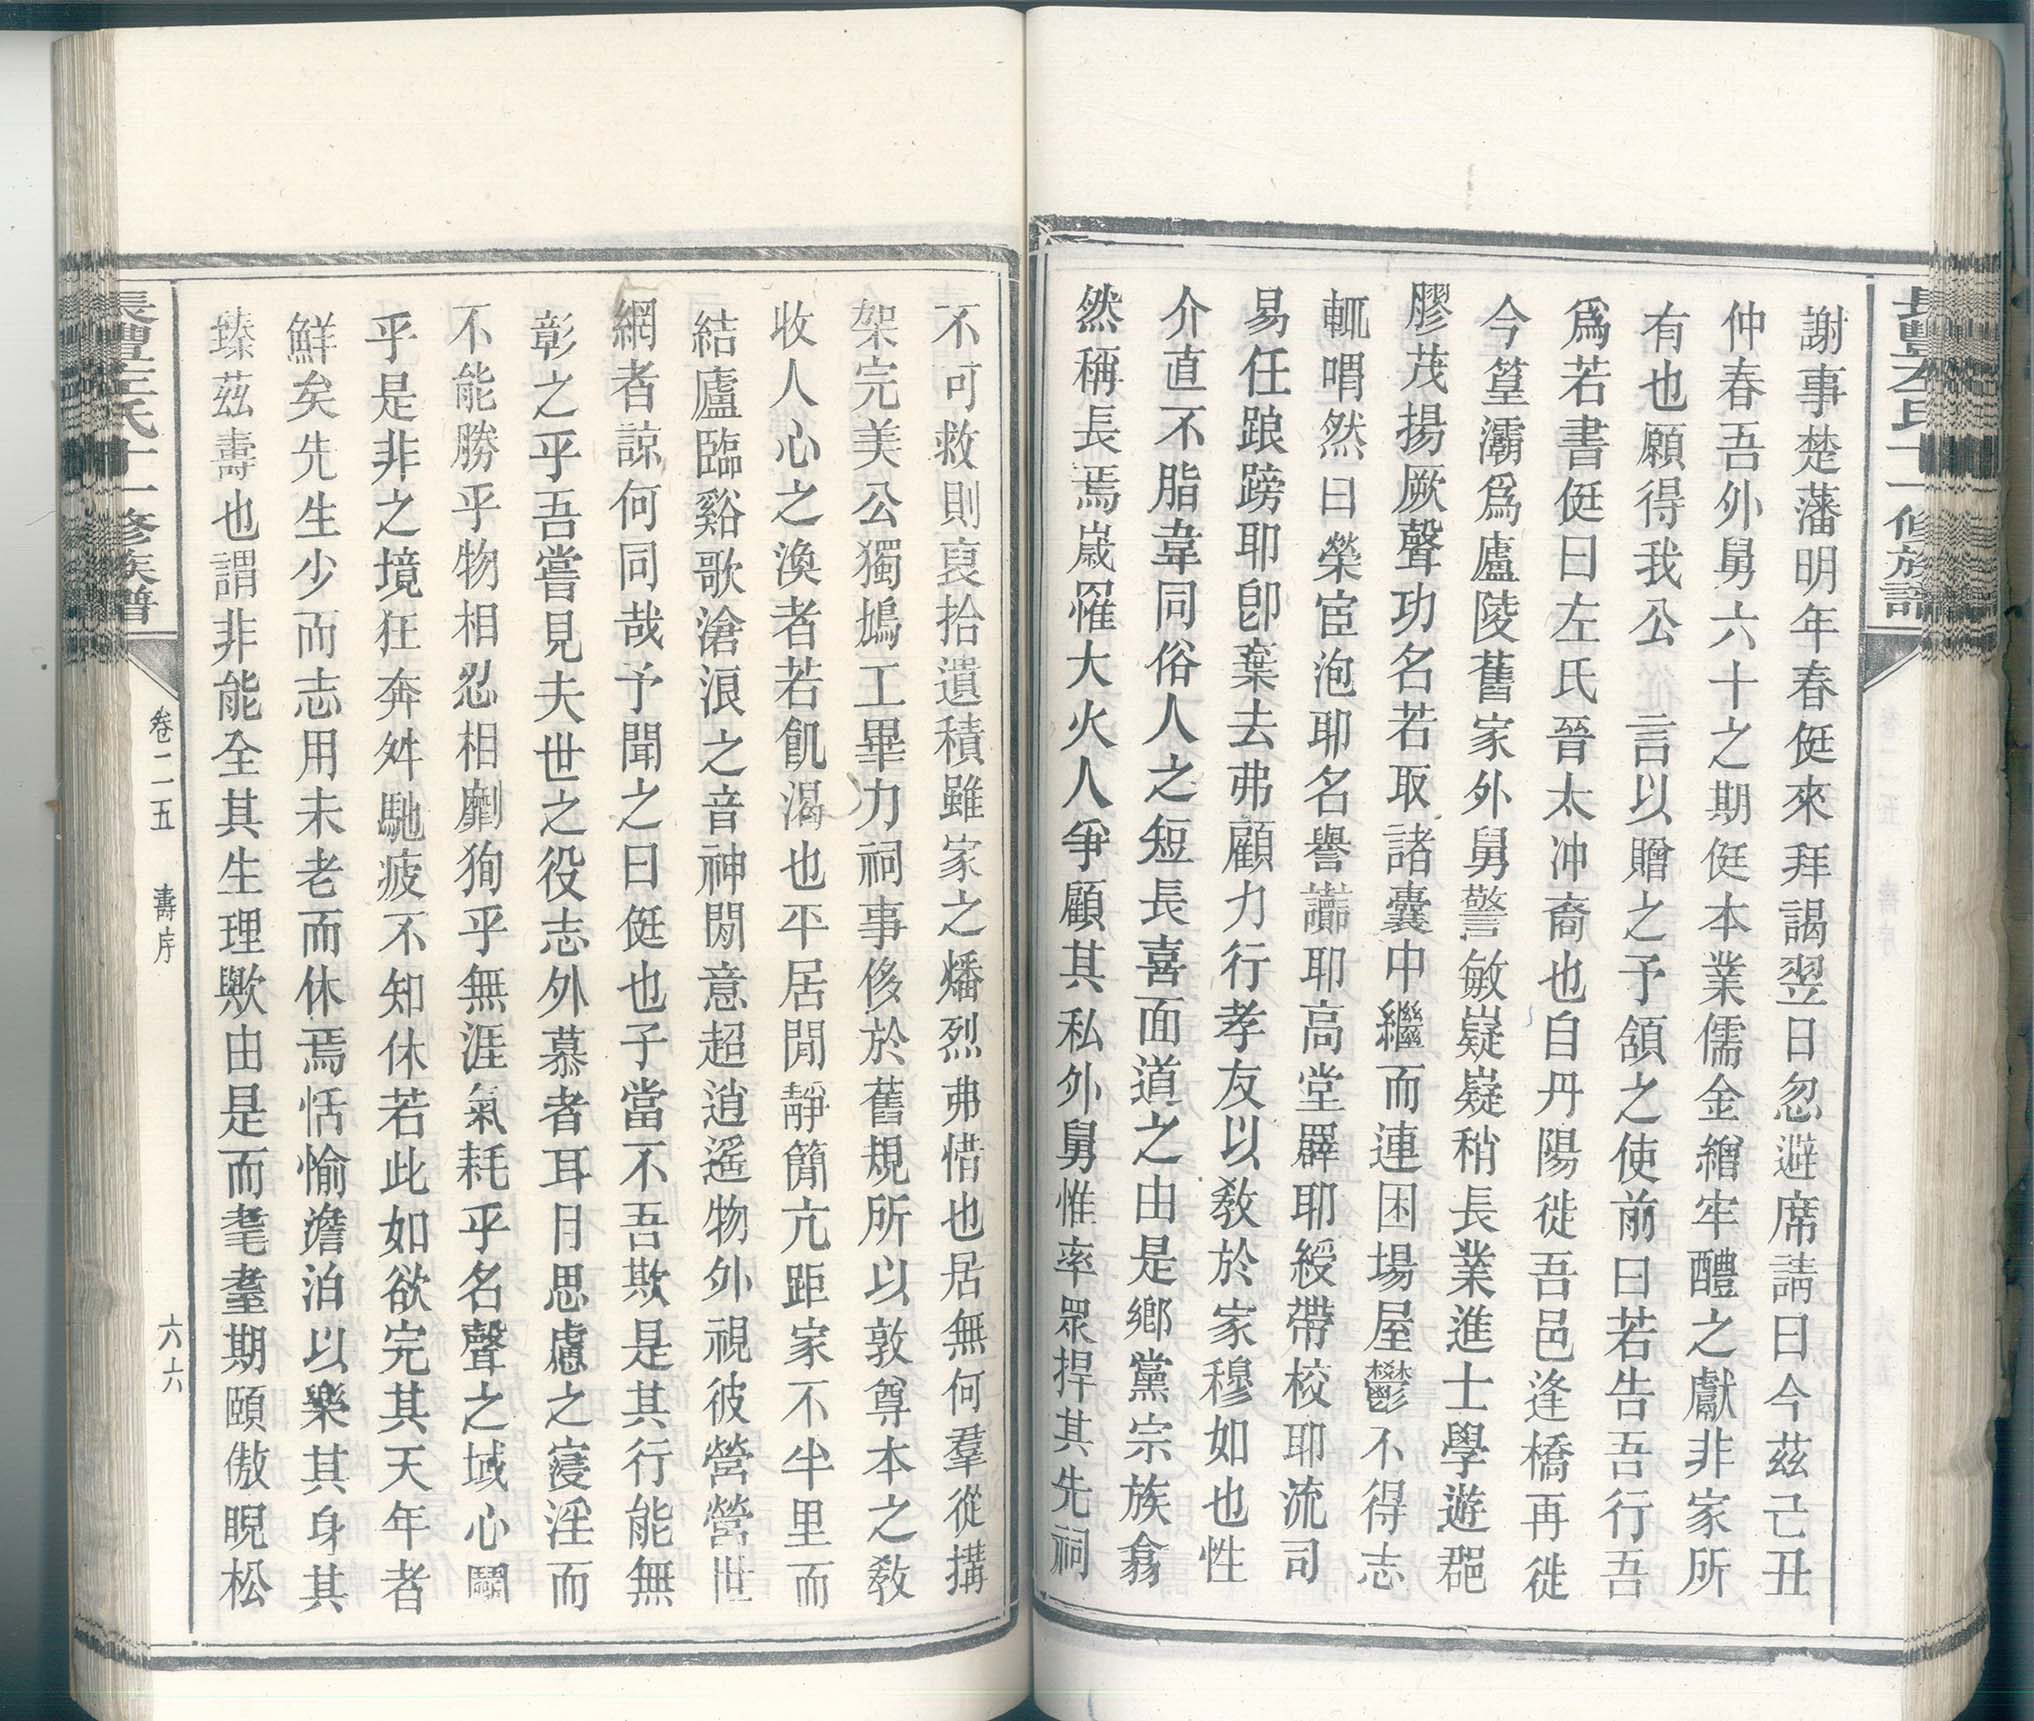 長豐左氏十一修族譜
謝事楚藩明年春侹來拜謁翌日忽避席請曰今茲己丑
仲春吾外舅六十之期侹本業儒金繒牢醴之獻非家所
有也願得我公 言以贈之予頷之使前曰若告吾行吾
爲若書侹曰左氏晉太冲裔也自丹陽徙吾邑逢橋再徙
今篁灞爲廬陵舊家外舅警敏嶷嶷稍長業進士學遊郡
膠茂揚厥聲功名若取諸囊中繼而連困場屋鬱不得志
輒喟然曰榮宦泡耶名譽讟耶高堂羼耶綬帶校耶流司
易任踉蹐耶卽棄去弗顧力行孝友以敎於家穆如也性
介直不脂韋同俗人之短長喜面道之由是鄉黨宗族翕
然稱長焉嵗罹大火人爭顧其私外舅惟率眾捍其先祠
不可救則裒拾遺積雖家之燔烈弗惜也居無何羣從搆
架完美公獨塢工畢力祠事侈於舊規所以敦尊本之敎
收人心之渙者若飢渴也平居閒靜簡亢距家不半里而
結廬臨谿歌滄浪之音神閒意超逍遙物外視彼營營世
網者諒何同哉予聞之曰侹也子當不吾欺是其行能無
彰之乎吾嘗見夫世之役志外慕者耳目思慮之寖淫而
不能勝乎物相忍相劘狥乎無涯氣耗乎名聲之域心鬭
乎是非之境狂奔舛馳疲不知休若此如欲完其天年者
鮮矣先生少而志用未老而休焉恬愉澹泊以樂其身其
臻茲壽也謂非能全其生理歟由是而耄耋期頤傲睨松
長豐左氏十一修族譜
卷二五 壽序 六六